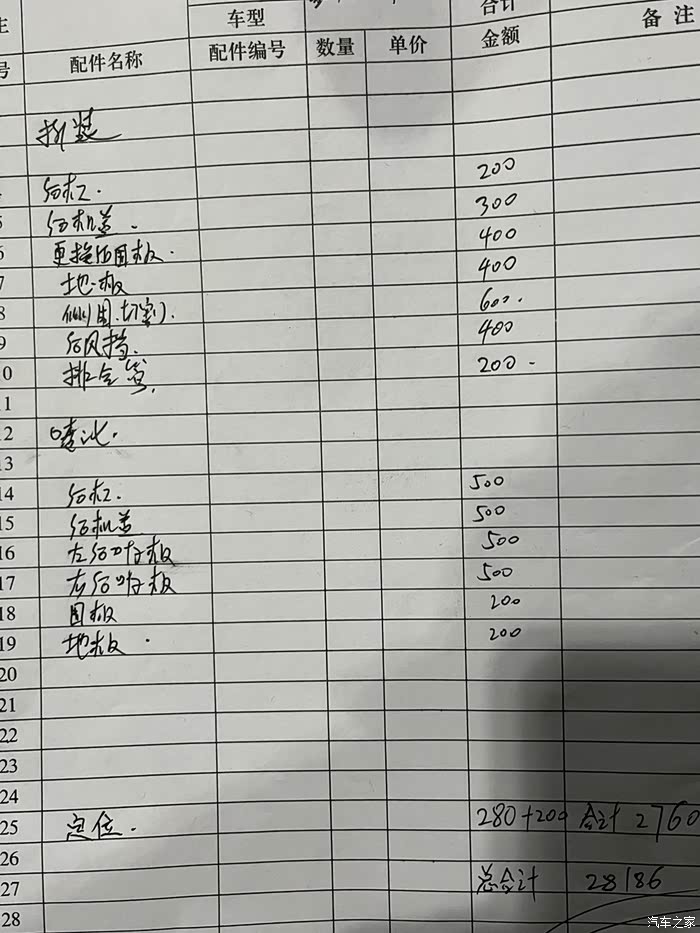 车型
合计
备注
号 配件名称 配件编号 数量 单价 金额
拆装
后杠. 200
5 后机盖. 300
6 更换后围板. 400
7 地板 400
8 侧围.切割). 600.
9 后风挡. 400
10 排气管. 200.
11
12 喷漆.
13
14 后杠. 500
15 后机盖 500
16 左后叶子板 500
17 右后叶子板 500
18 围板 200
19 地板. 200
20
21
22
23
24
25 定位. 280+200 合计 2760
26
27 总合计 28186
28
汽车之家